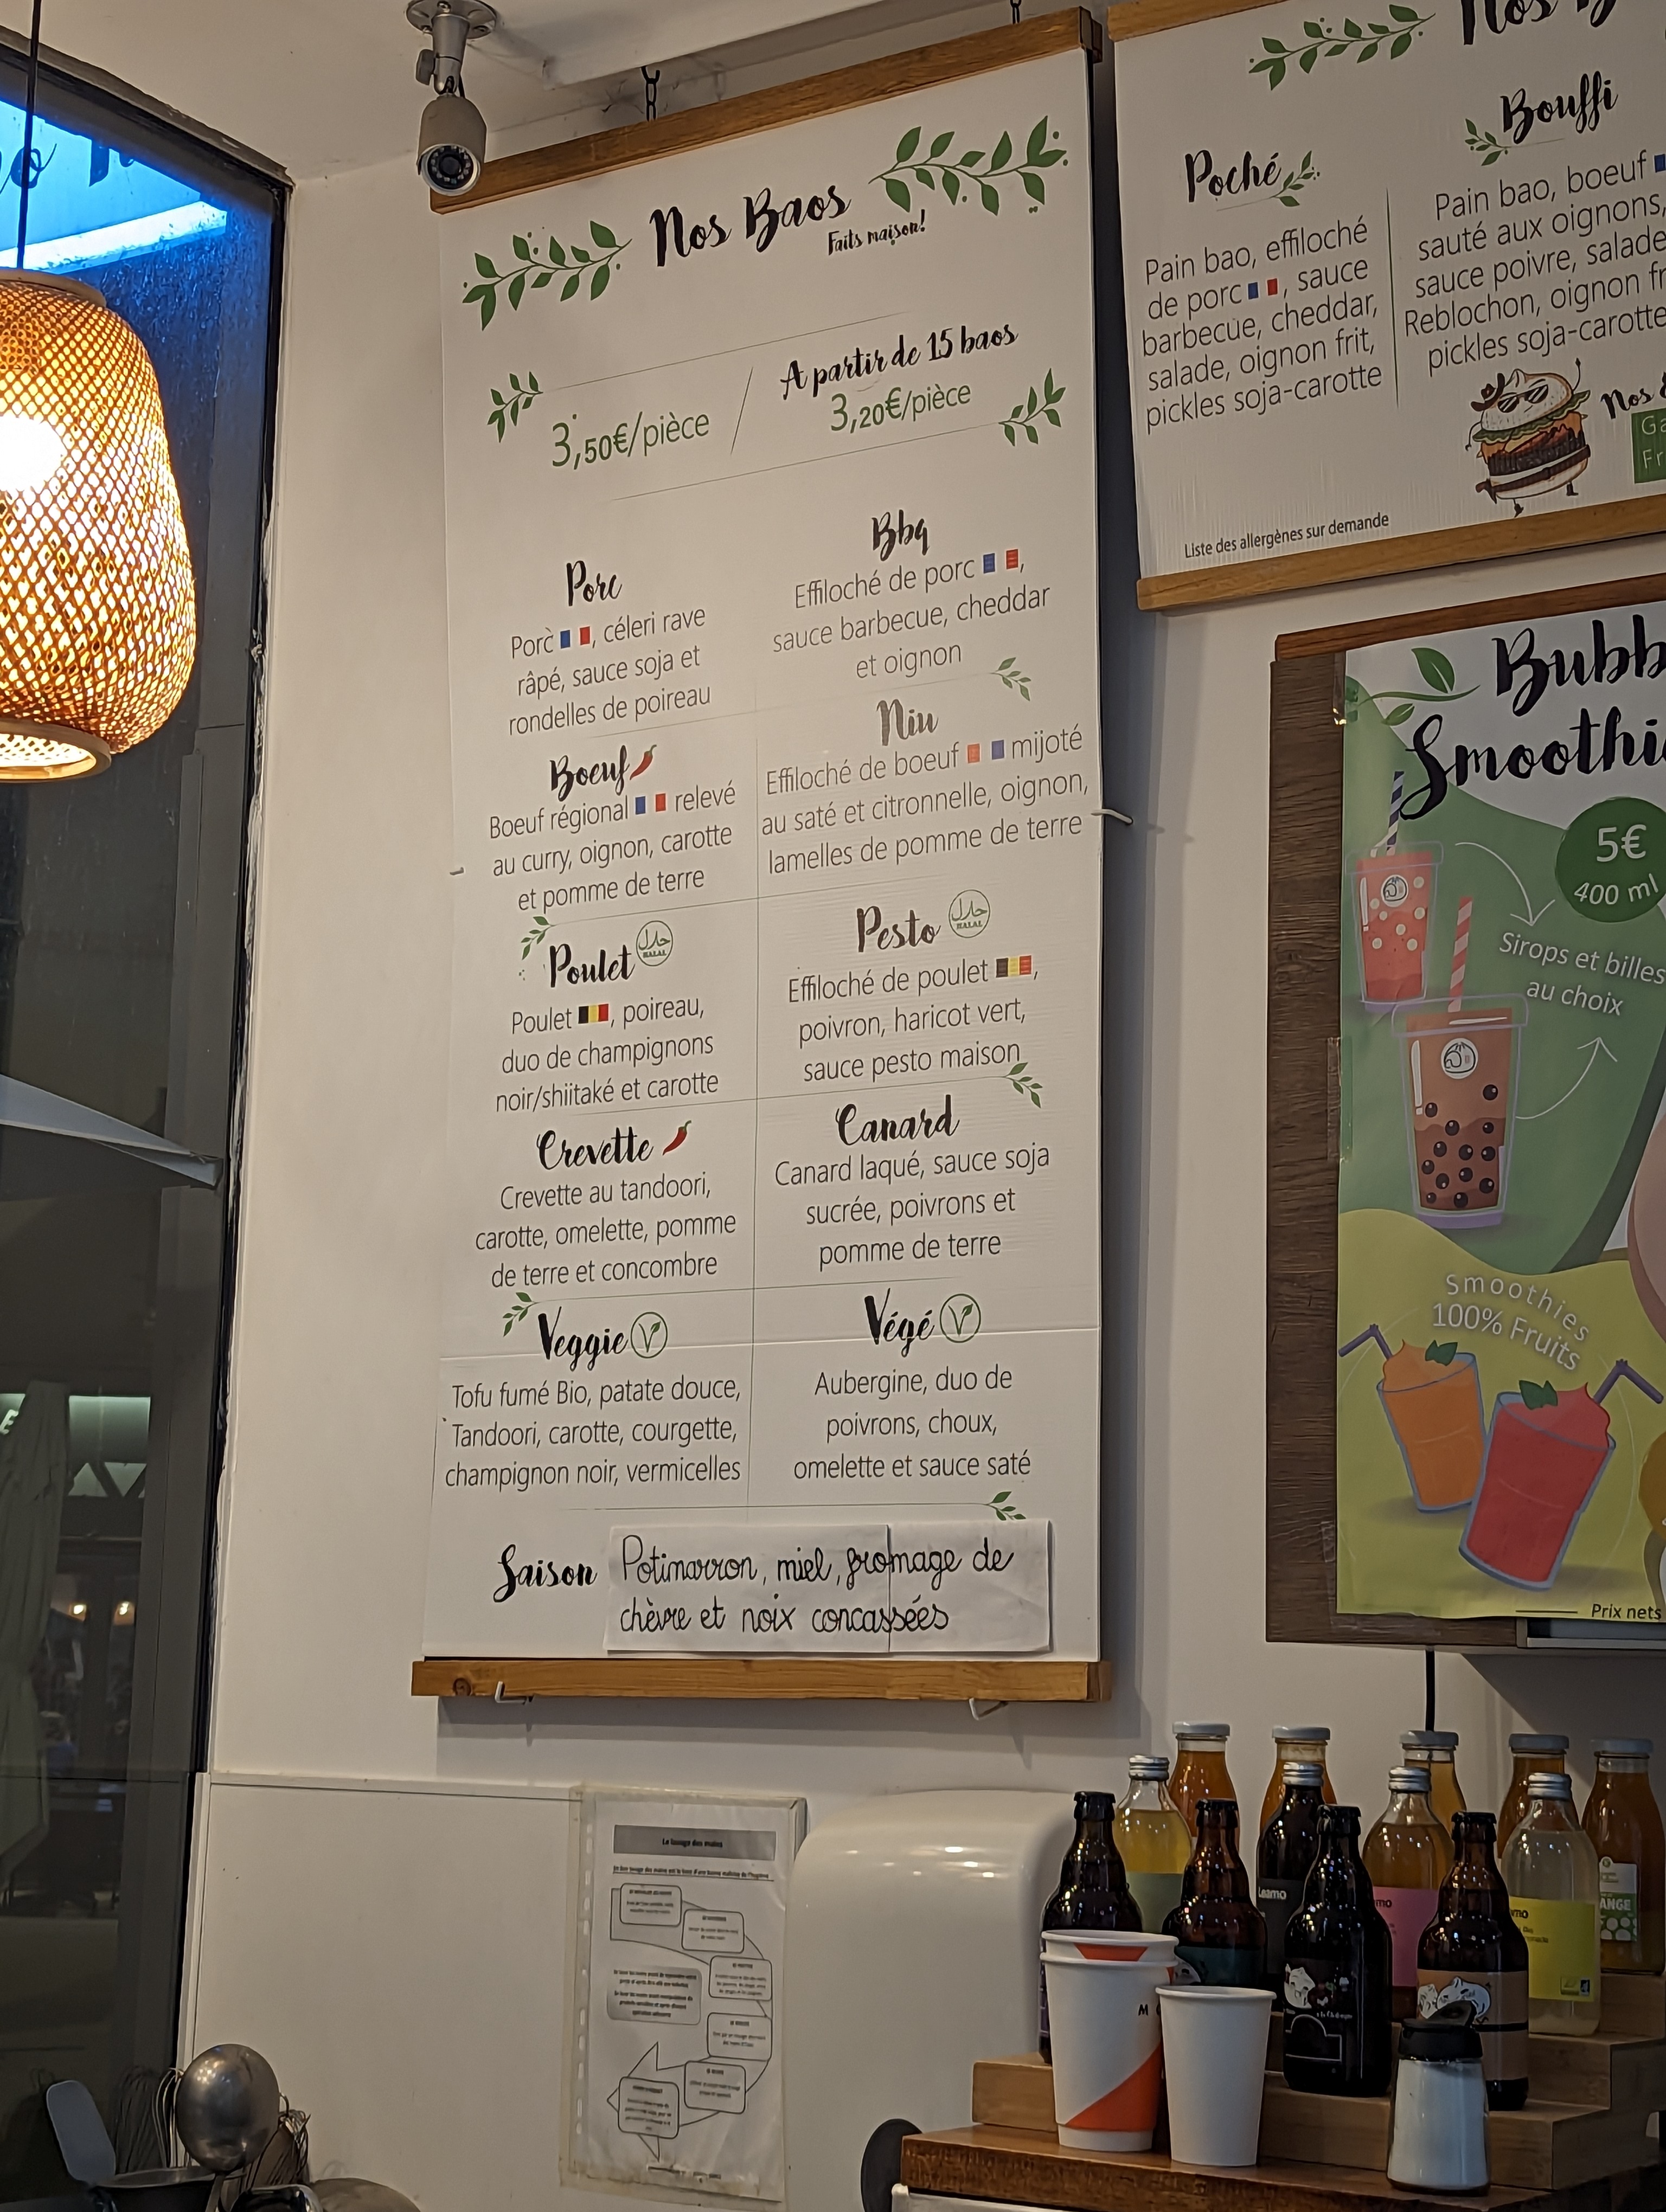 Nos Baos
Faits maison!
3,50€/pièce
A partir de 15 baos
3,20€/pièce
Porc
Porc, céleri rave
râpé, sauce soja et
rondelles de poireau
Bbq
Effiloché de porc,
sauce barbecue, cheddar
et oignon
Boeuf
Boeuf régional relevé
au curry, oignon, carotte
et pomme de terre
Niu
Effiloché de boeuf mijoté
au saté et citronnelle, oignon,
lamelles de pomme de terre
Poulet
حلال
HALAL
Poulet, poireau,
duo de champignons
noir/shiitaké et carotte
Pesto
حلال
HALAL
Effiloché de poulet,
poivron, haricot vert,
sauce pesto maison
Crevette
Crevette au tandoori,
carotte, omelette, pomme
de terre et concombre
Canard
Canard laqué, sauce soja
sucrée, poivrons et
pomme de terre
Veggie
V
Tofu fumé Bio, patate douce,
Tandoori, carotte, courgette,
champignon noir, vermicelles
Végé
V
Aubergine, duo de
poivrons, choux,
omelette et sauce saté
Saison
Potimarron, miel, fromage de
chèvre et noix concassées
Nos B
Poché
Pain bao, effiloché
de porc, sauce
barbecue, cheddar,
salade, oignon frit,
pickles soja-carotte
Bouffi
Pain bao, boeuf
sauté aux oignons,
sauce poivre, salade
Reblochon, oignon fr
pickles soja-carotte
Nos
Ga
Fr
Liste des allergènes sur demande
Bubb
Smoothi
5€
400 ml
Sirops et billes
au choix
Smoothies
100% Fruits
Prix nets
Le lavage des mains
Leamo
mo
mo
ANGE
M